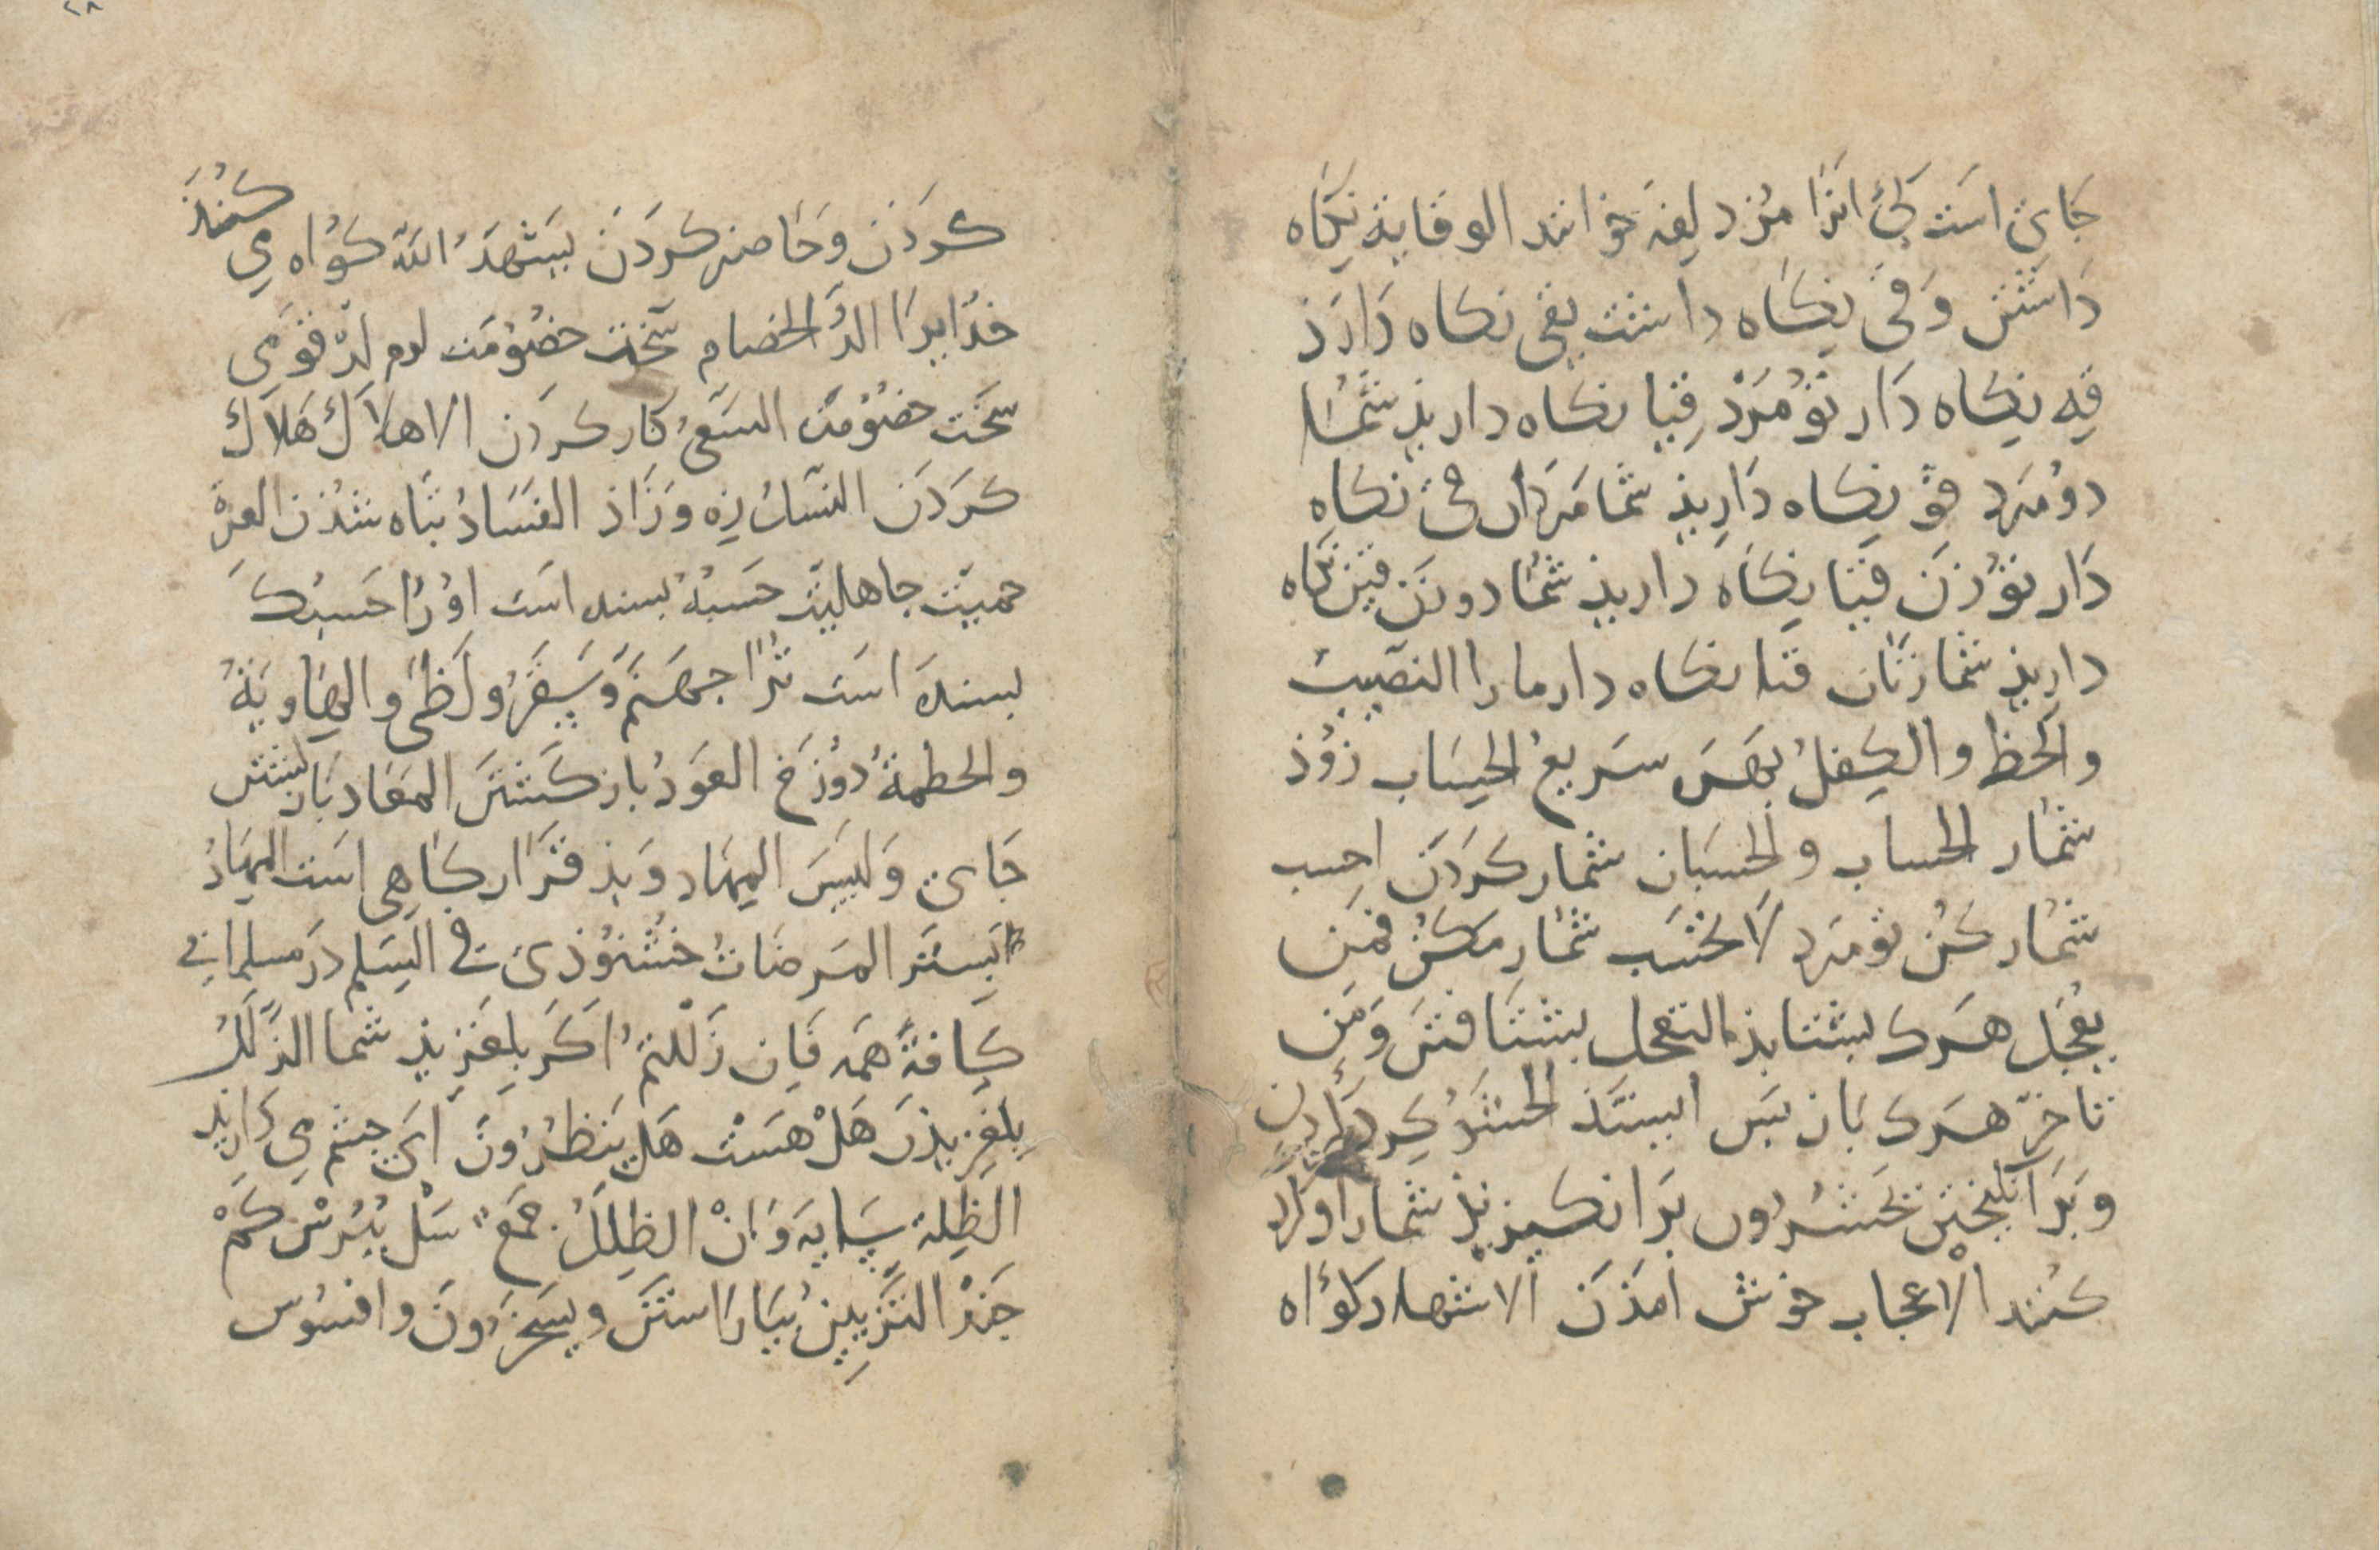 جَاي است كِئ انرا مزد لفه خوانند الوقاية نكاه
دَاشتن وَقى نِكاه داشت يقى نكاه دَارَد
قِه نِكاه دَار تو مَرد قِيا نكاه داريذ شما
دو مرد قو نكاه دَاريذ شما مَردَان قى نكاه
دَار تو زَن قيا نكاه داريذ شما دو زن قين نكاه
داريذ شما زنان قنا نكاه دار ما را النصيب
والحظ والكِفل بهَر سَريع الحِسَاب زوُذ
شمار الحساب والحِسبَان شمار كَردَن احِسب
شمار كن تو مرد لا تحسَب شمار مكن فمَن
يعجَل هَرك بشتابذ التعجل بشتافتن وَمَن
تاخر هَرك باز بَس ايستَذ الحشر كِرد
وبَرانكيختن تحشَرُون بَرانكيزيذ شمارا
كنند الاعجاب خوش امَذن الاشهاد كوَاه
كردن وحَاضر كردَن يشهدُ الله كوَاه مِى كنذ
خدايرا الدُّ الخصام سَخت خصُومَت لدم لدّة قومى
سَخت خصُومَت السَعىُ كار كردن الاهلاك هَلاك
كردَن النسل زه وَزَاذ الفَسَادُ تبَاه شذن العزة
حميَت جاهليت حَسبهُ بسنده است اورا حَسبك
بسنده است ترا جهَنم وَسَقَر ولَظى والهاويَةُ
والحطمة دوزَخ العَودُ باز كشتن المعَاد باز كشتن
جَاى وَلبيسَ المِهَاد وَبذ قرَار كاهِى است المِهَادُ
بستر المَرضَاتُ خشنوذى فى السِلم دَر مسلمانى
كافة هَمه فَان زَللتم اكر بلغزيذ شما الزلَلُ
بلغزيذن هَلْ هَست هَل يَنظرُونَ اى جشم مى دَاريذ
الظلة سَايَه وَانْ الظلَلُ جَمعٌ سَل ببُرس كمْ
جَند التزيين بيَاراستن ويسخَرون وافسوس